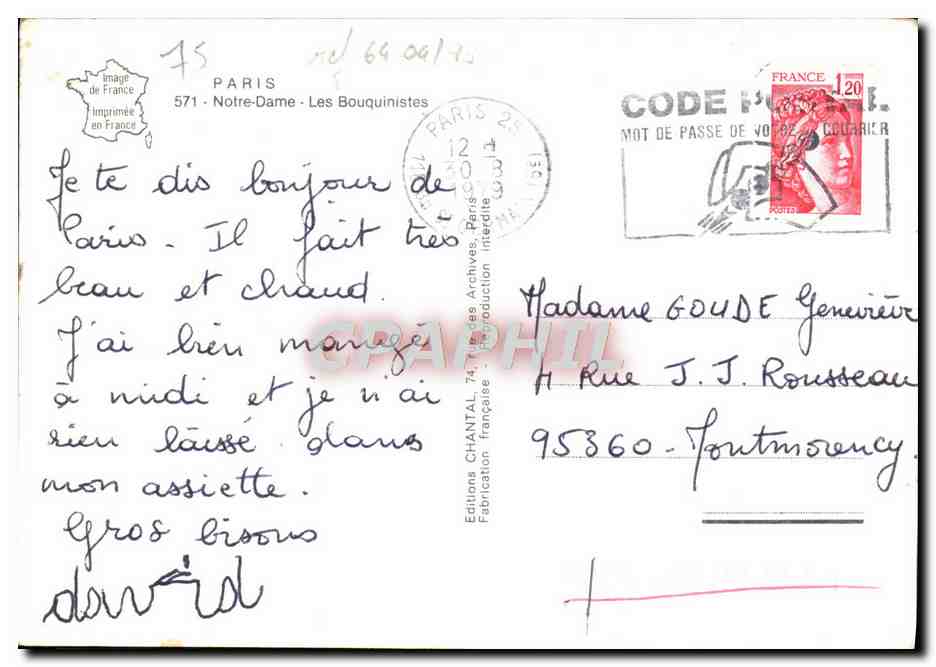 75
Image
de France
Imprimée
en France
PARIS
571 - Notre-Dame - Les Bouquinistes
PARIS 25
12 H
30 - 8
1979
CODE POSTAL
MOT DE PASSE DE VOTRE COURRIER
FRANCE 1,20
POSTES
Je te dis bonjour de
Paris. Il fait très
beau et chaud.
J'ai bien mangé
à midi et je n'ai
rien laissé dans
mon assiette.
Gros bisous
david
Editions CHANTAL, 74, rue des Archives, Paris
Fabrication française - Reproduction interdite
CPAPHIL
Madame GOUDE Geneviève
4 Rue J. J. Rousseau
95360 - Montmorency.